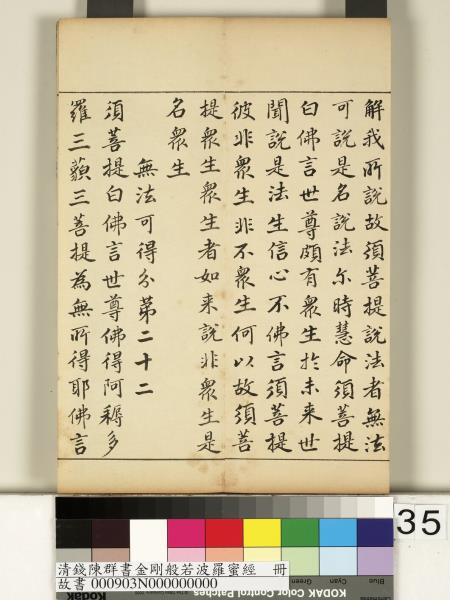 解我所說故須菩提說法者無法
可說是名說法尒時慧命須菩提
白佛言世尊頗有衆生於未来世
聞說是法生信心不佛言須菩提
彼非衆生非不衆生何以故須菩
提衆生衆生者如来說非衆生是
名衆生
無法可得分苐二十二
須菩提白佛言世尊佛得阿耨多
羅三藐三菩提為無所得耶佛言
35
清錢陳群書金剛般若波羅蜜經 冊
故書 000903N000000000
Blue
Cyan
Green
KODAK Color Control Patches